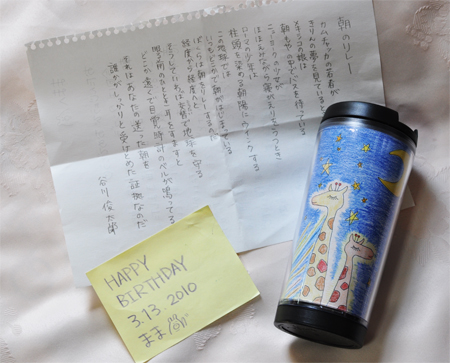 朝のリレー
カムチャッカの若者が
きりんの夢を見ているとき
メキシコの娘は
朝もやの中でバスを待っている
ニューヨークの少女が
ほほえみながら寝がえりをうつとき
ローマの少年は
柱頭を染める朝陽にウインクする
この地球では
いつもどこかで朝がはじまっている
ぼくらは朝をリレーするのだ
経度から経度へと
そうしていわば交替で地球を守る
眠る前のひととき耳をすますと
どこか遠くで目覚時計のベルが鳴ってる
それはあなたの送った朝を
誰かがしっかりと受けとめた証拠なのだ
谷川俊太郎
HAPPY
BIRTHDAY
3.13 2010
まま